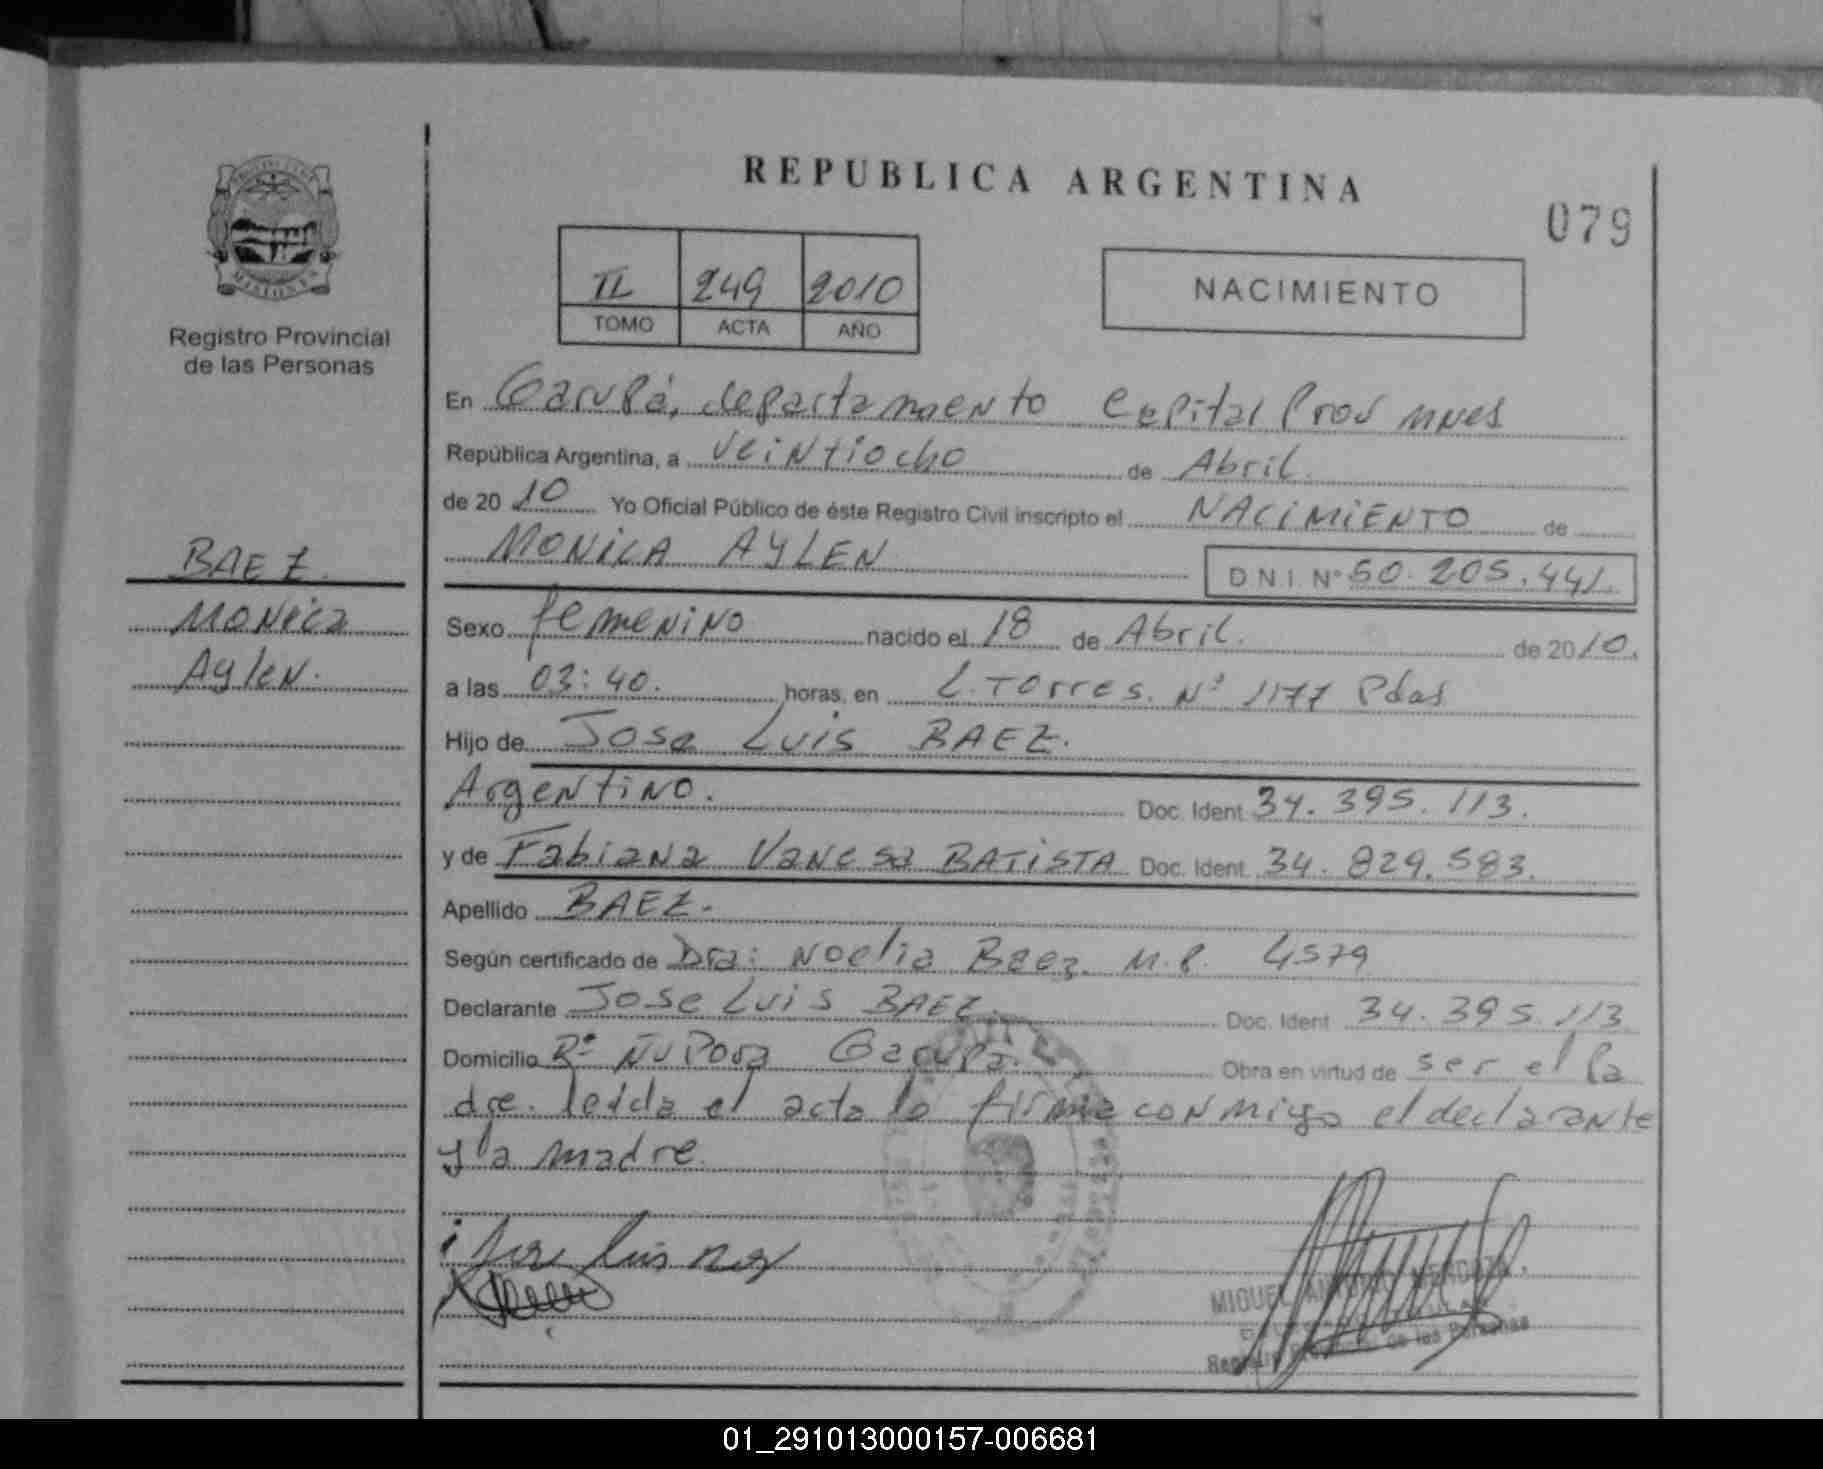 REPUBLICA ARGENTINA
079
MISIONES
Registro Provincial
de las Personas
II 249 2010
TOMO ACTA AÑO
NACIMIENTO
En Garupá, departamento Capital Prov mnes
República Argentina, a veintiocho de Abril.
de 2010 Yo Oficial Público de éste Registro Civil inscripto el NACIMIENTO de
MONICA AYLEN
D.N.I. Nº 50.205.441.
BAEZ.
Monica
Aylen.
Sexo femenino nacido el 18 de Abril. de 2010.
a las 03:40. horas, en L. Torres. Nº 1177 Pdas
Hijo de Jose Luis BAEZ.
Argentino. Doc. Ident. 34.395.113.
y de Fabiana Vanesa BATISTA Doc. Ident. 34.829.583.
Apellido BAEZ.
Según certificado de Dra: Noelia Baez. M.P. 4579
Declarante Jose Luis BAEZ. Doc. Ident. 34.395.113
Domicilio Bº Ñu Pora Garupa. Obra en virtud de ser el Pa
dre. leída el acta la firma conmigo el declarante
y la madre.
MIGUEL ANTONIO MENDOZA
de las Personas
01_291013000157-006681